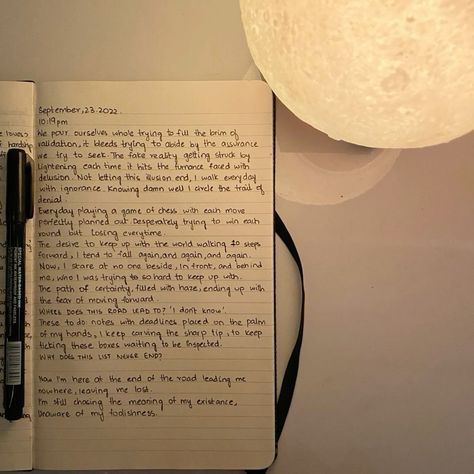 September,23.2022.
10:19pm
We pour ourselves whole trying to fill the brim of
validation, it bleeds trying to abide by the assurance
we try to seek. The fake reality getting struck by
lightening each time it hits the turnance faced with
delusion. Not letting this illusion end, I walk everyday
with ignorance. Knowing damn well I circle the trail of
denial.
Everyday playing a game of chess with each move
perfectly planned out. Desperately trying to win each
round but losing everytime.
The desire to keep up with the world walking 10 steps
forward, I tend to fall again, and again, and again.
Now, I stare at no one beside, in front, and behind
me, who I was trying to so hard to keep up with.
The path of certainty, filled with haze, ending up with
the fear of moving forward.
WHERE DOES THIS ROAD LEAD TO? 'I don't know'.
These to do notes with deadlines placed on the palm
of my hands, I keep carving the sharp tip, to keep
ticking these boxes waiting to be inspected.
WHY DOES THIS LIST NEVER END?
Now I'm here at the end of the road leading me
nowhere, leaving me lost.
I'm still chasing the meaning of my existance,
Unaware of my foolishness.